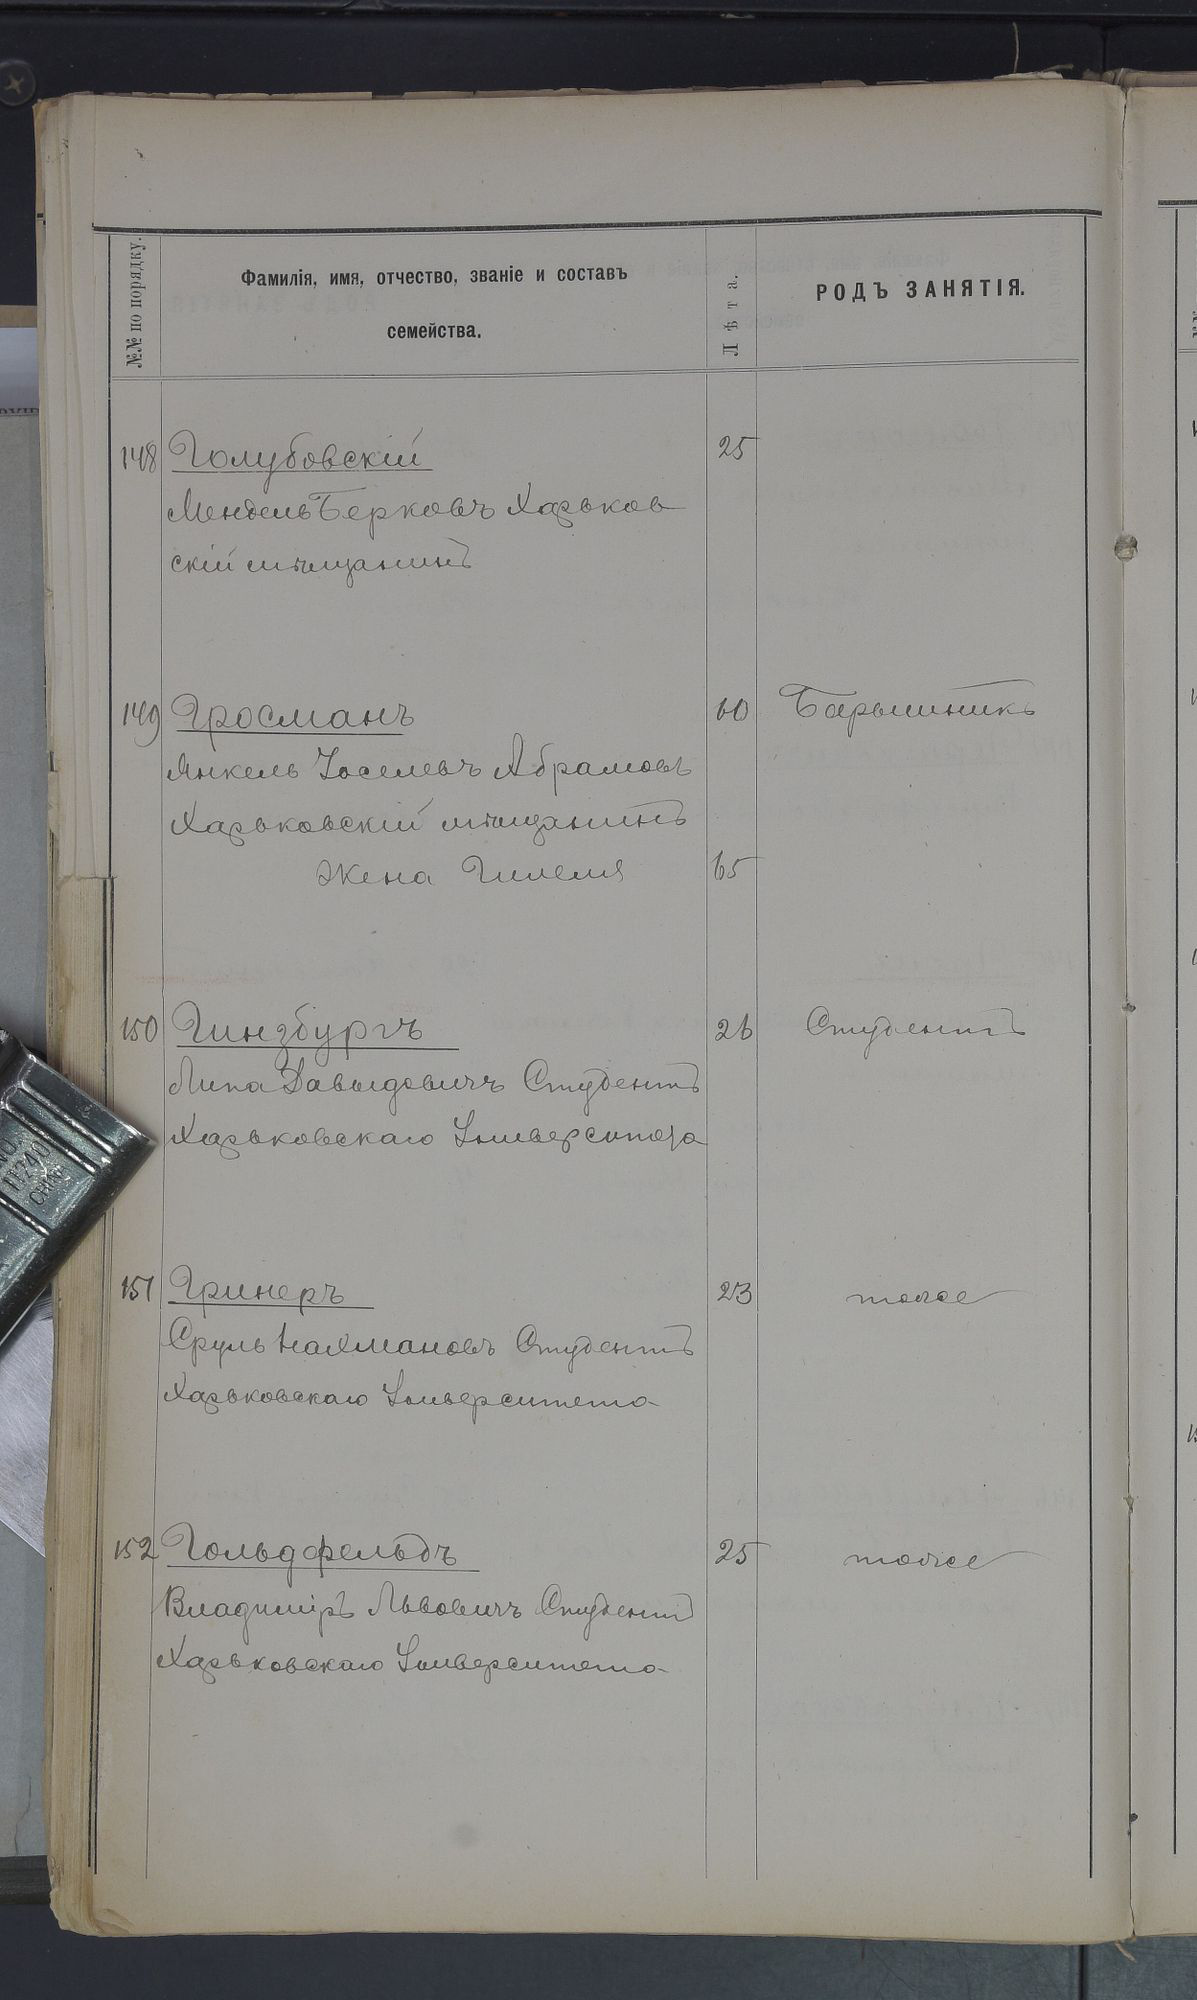 №№ по порядку.
Фамилія, имя, отчество, званіе и составъ
семейства.
Лѣта.
РОДЪ ЗАНЯТІЯ.
148 Голубовскій 25
Мендель Берковъ Харьков
скій мѣщанинъ
149 Гросманъ 60 Барышникъ
Янкель Іоселевъ Абрамовъ
Харьковскій мѣщанинъ
Жена 65
150 Гинзбургъ 26 Студентъ
Липа Давыдовичъ Студентъ
Харьковскаго Университета
151 Гринеръ 23 тоже
Сруль Нахмановъ Студентъ
Харьковскаго Университета
152 Гольдфельдъ 25 тоже
Владиміръ Львовичъ Студентъ
Харьковскаго Университета
11740
CHINA